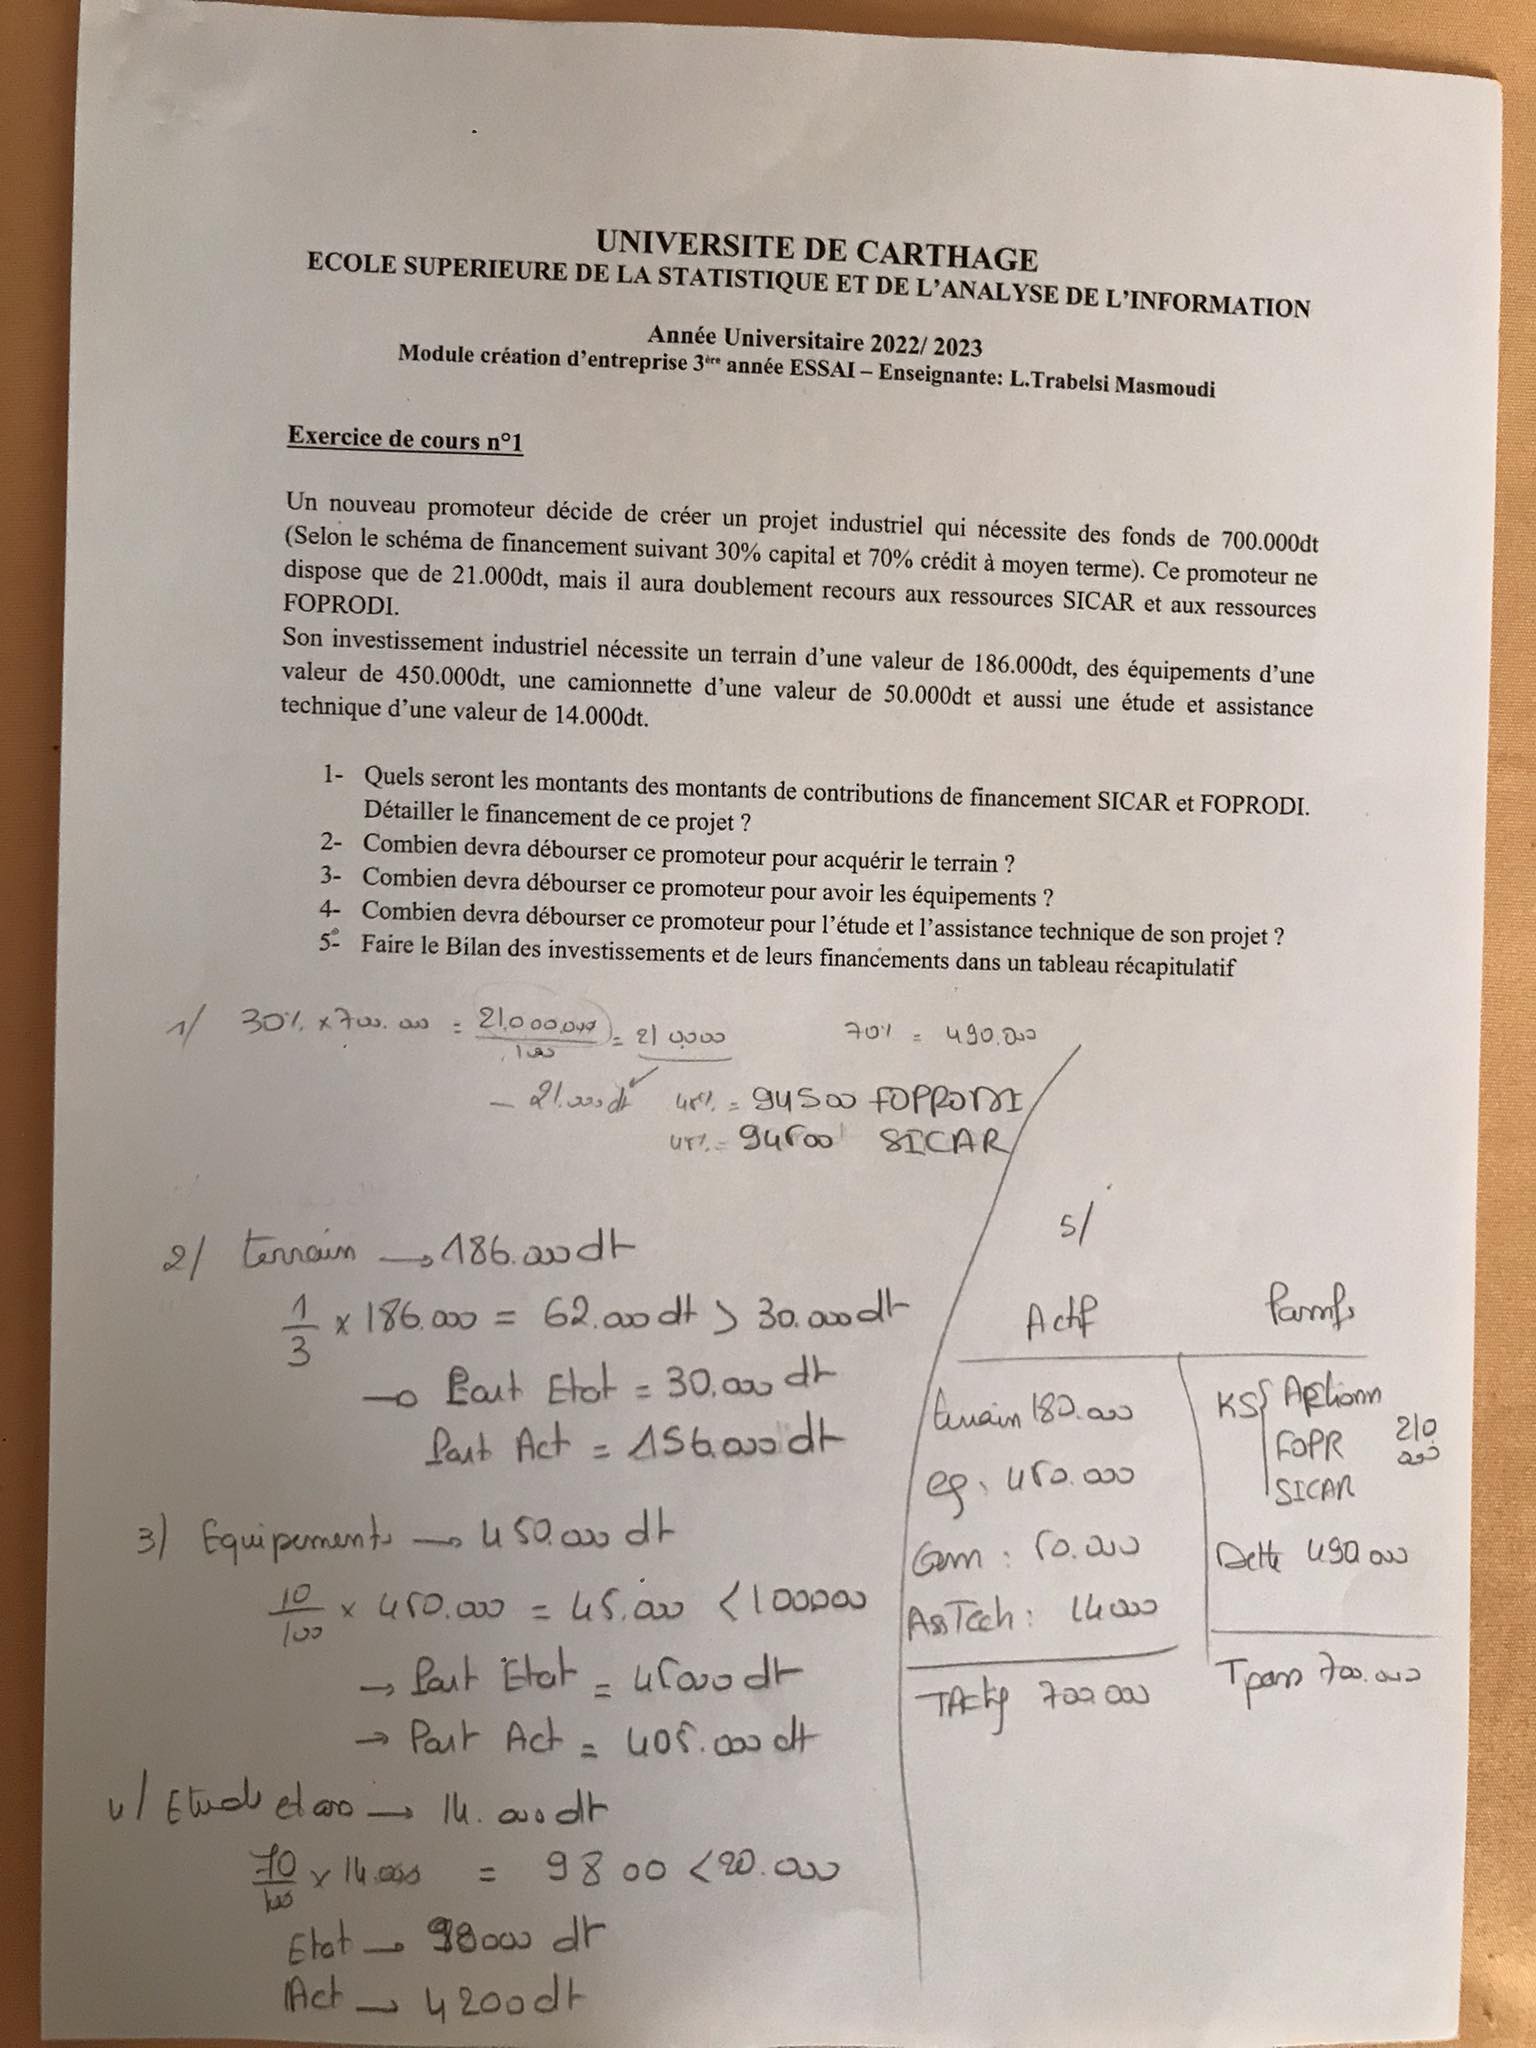 UNIVERSITE DE CARTHAGE
ECOLE SUPERIEURE DE LA STATISTIQUE ET DE L'ANALYSE DE L'INFORMATION
Année Universitaire 2022/ 2023
Module création d'entreprise 3ère année ESSAI – Enseignante: L.Trabelsi Masmoudi
Exercice de cours n°1
Un nouveau promoteur décide de créer un projet industriel qui nécessite des fonds de 700.000dt
(Selon le schéma de financement suivant 30% capital et 70% crédit à moyen terme). Ce promoteur ne
dispose que de 21.000dt, mais il aura doublement recours aux ressources SICAR et aux ressources
FOPRODI.
Son investissement industriel nécessite un terrain d'une valeur de 186.000dt, des équipements d'une
valeur de 450.000dt, une camionnette d'une valeur de 50.000dt et aussi une étude et assistance
technique d'une valeur de 14.000dt.
1- Quels seront les montants des montants de contributions de financement SICAR et FOPRODI.
Détailler le financement de ce projet ?
2- Combien devra débourser ce promoteur pour acquérir le terrain ?
3- Combien devra débourser ce promoteur pour avoir les équipements ?
4- Combien devra débourser ce promoteur pour l'étude et l'assistance technique de son projet ?
5- Faire le Bilan des investissements et de leurs financements dans un tableau récapitulatif
1/ 30% x 700.000 = 21.000.000/100 = 210.000 70% = 490.000
- 21.000dt 45% = 94500 FOPRODI
45% = 94500 SICAR
2/ terrain → 186.000dt
1/3 x 186.000 = 62.000dt > 30.000dt
→ Part Etat = 30.000 dt
Part Act = 156.000dt
3) Equipements → 450.000 dt
10/100 x 450.000 = 45.000 < 100000
→ Part Etat = 45000 dt
→ Part Act = 405.000 dt
4/ Etude et ass → 14.000dt
70/100 x 14.000 = 9800 < 20.000
Etat → 98000 dt
Act → 4200dt
5/
Actif Passifs
terrain 180.000
eq. 450.000
Cam : 50.000
AssTech : 14000
TActif 700000
KS { Actionn
FOPR 210
000
SICAR
Dette 490 000
Tpass 700.000